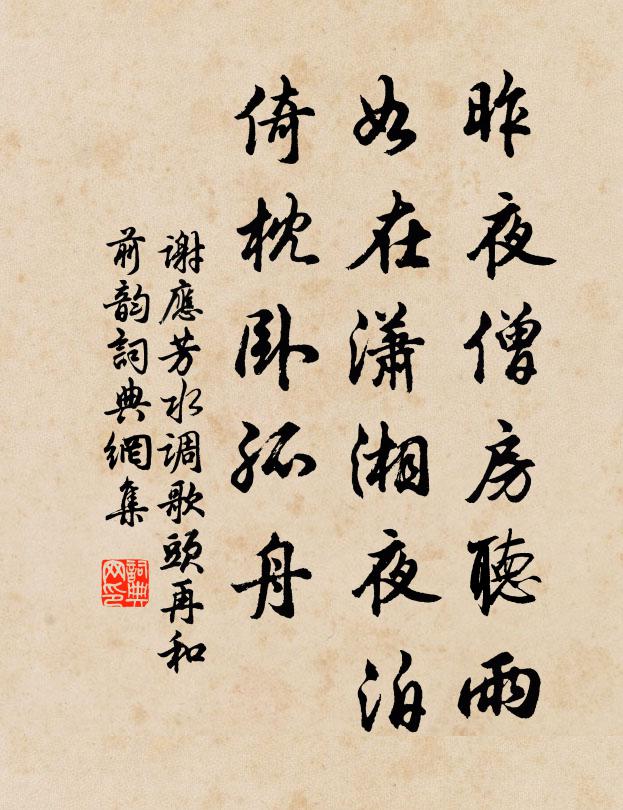 昨夜僧房聽雨
如在瀟湘夜泊
倚枕卧孤舟
謝應芳水調歌頭再和
前韵詞典網集
詞典
网印